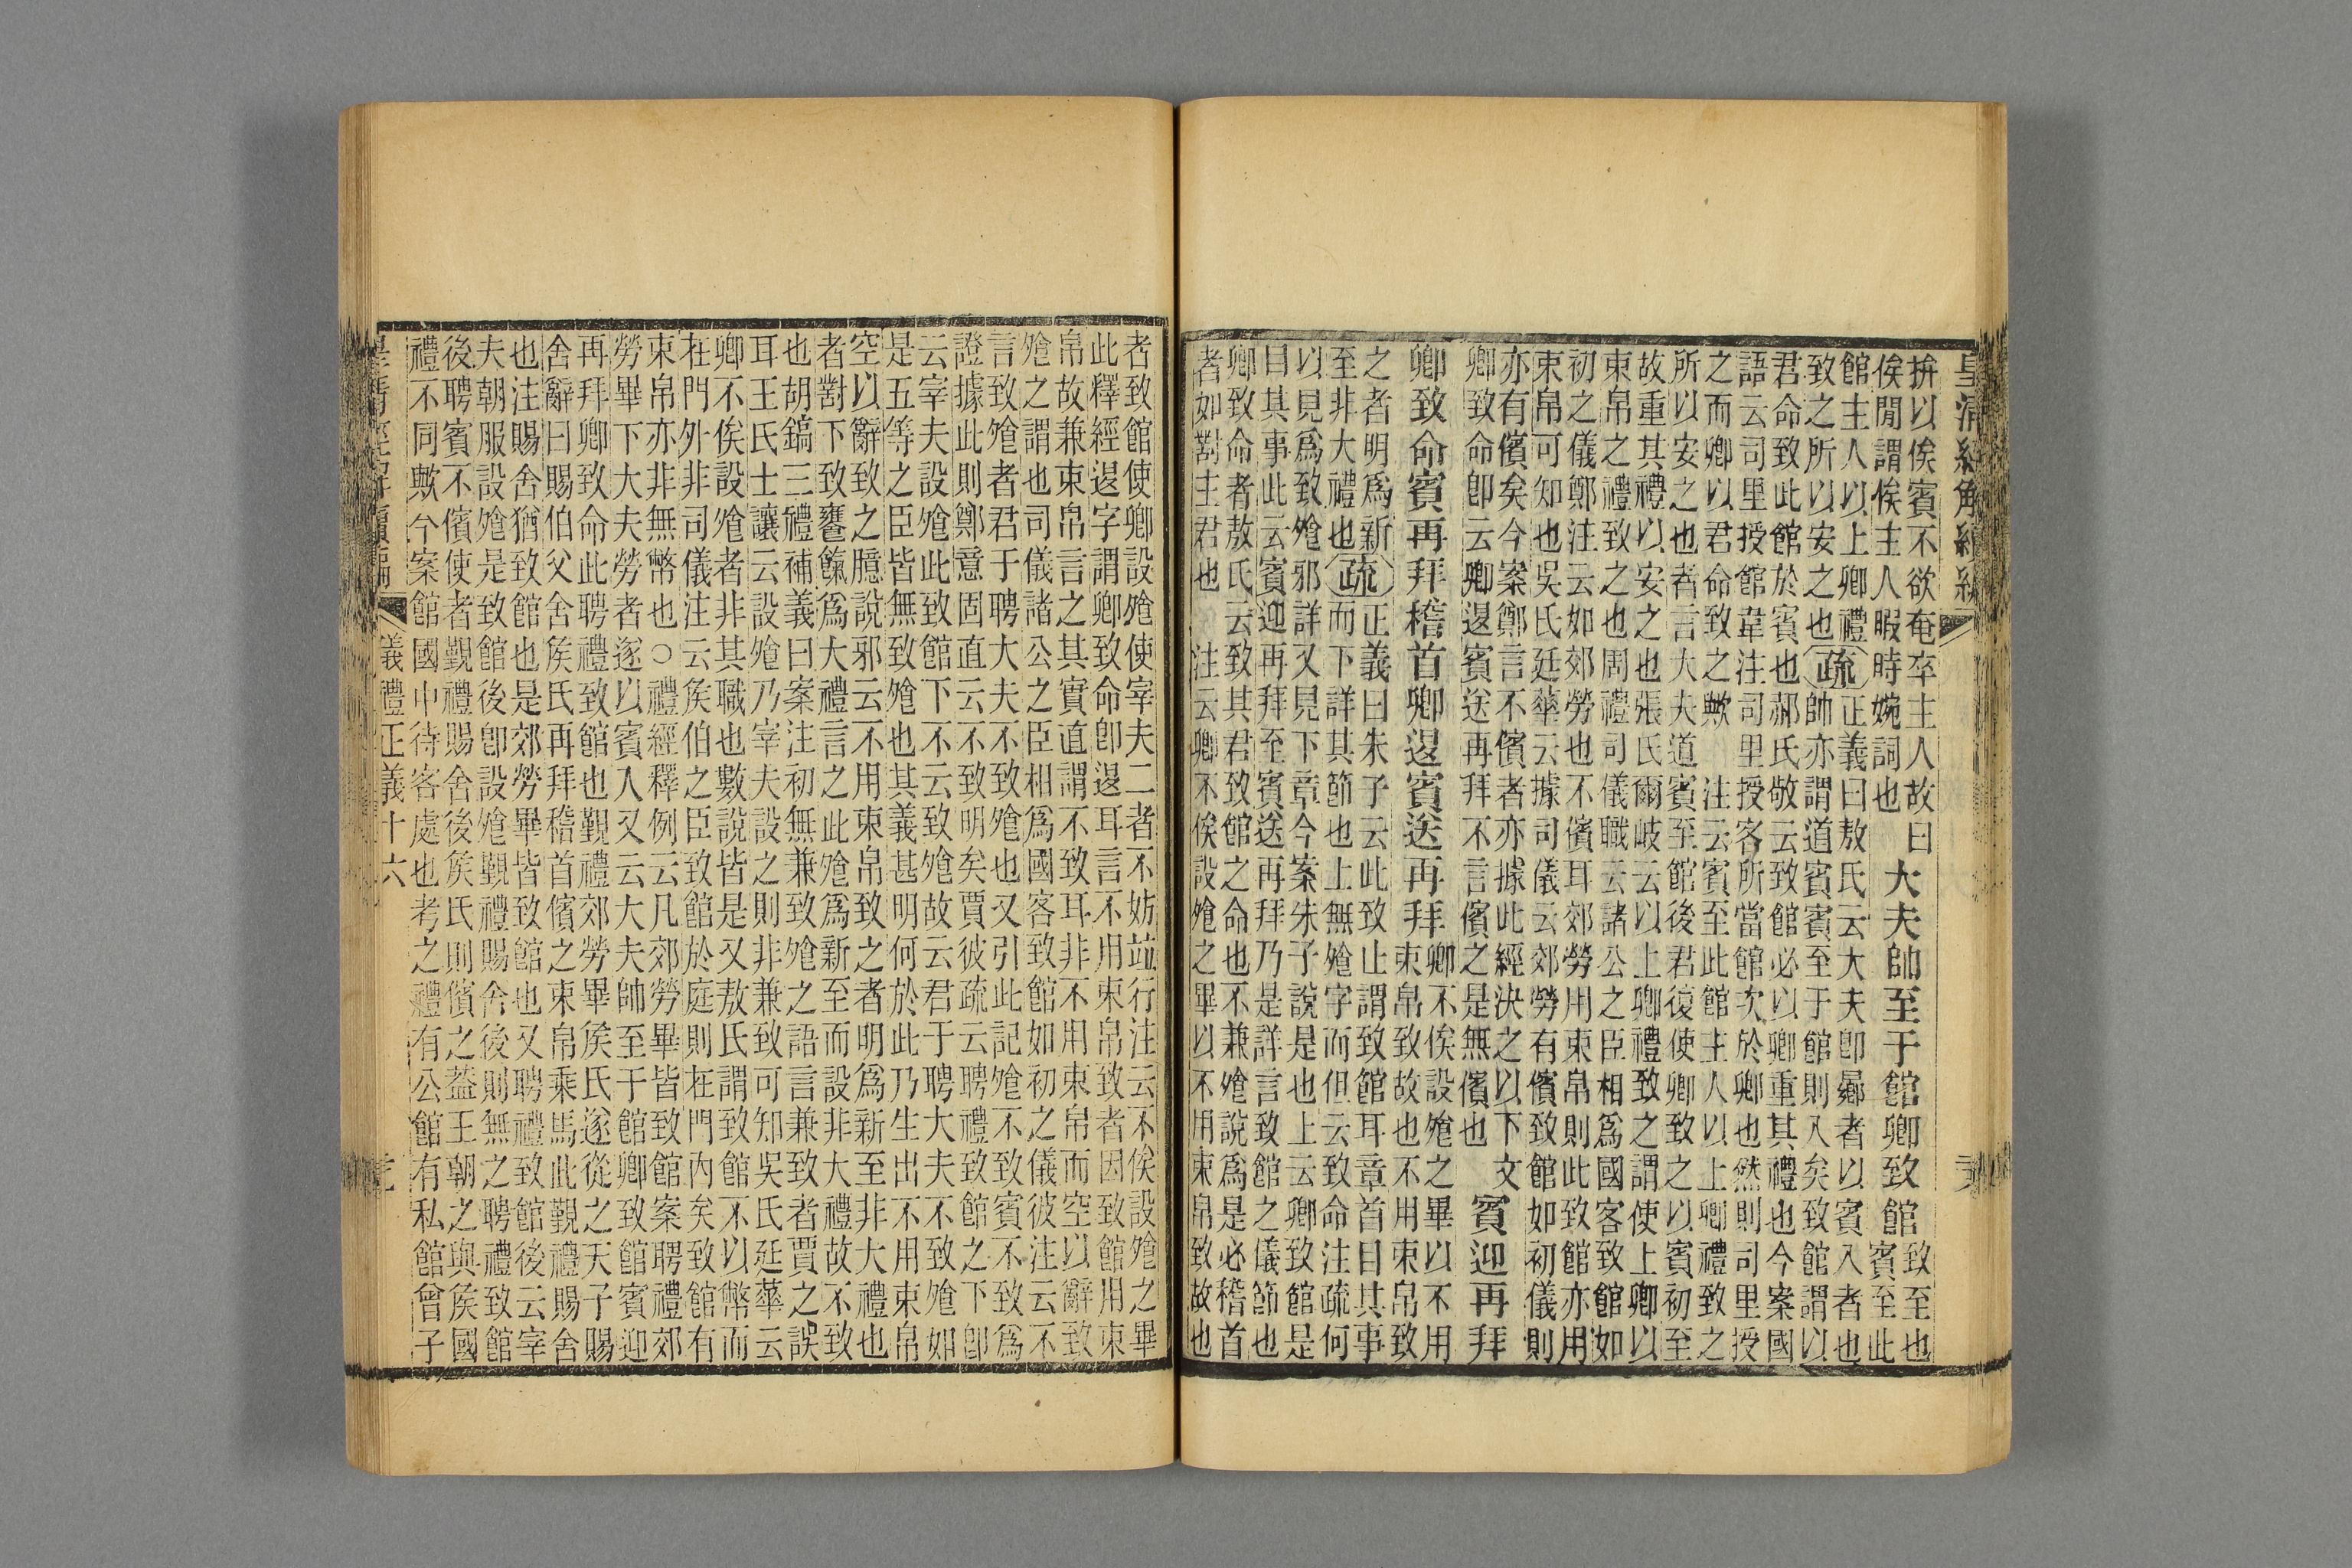 皇清經解續編
拚以俟賓不欲奄卒主人故曰
俟閒謂俟主人暇時婉詞也
大夫帥至于館卿致館
致至也
賓至此
館主人以上卿禮
致之所以安之也
疏
正義曰敖氏云大夫卽曏者以賓入者也
帥亦謂道賓賓至于館則入矣致館謂以
君命致此館於賓也郝氏敬云致館必以卿重其禮也今案國
語云司里授館韋注司里授客所當館次於卿也然則司里授
之而卿以君命致之歟 注云賓至此館主人以上卿禮致之
所以安之也者言大夫道賓至館後君復使卿致之以賓初至
故重其禮以安之也張氏爾岐云以上卿禮致之謂使上卿以
束帛之禮致之也周禮司儀職云諸公之臣相爲國客致館如
初之儀鄭注云如郊勞也不儐耳郊勞用束帛則此致館亦用
束帛可知也吳氏廷華云據司儀云郊勞有儐致館如初儀則
亦有儐矣今案鄭言不儐者亦據此經決之以下文
卿致命卽云卿退賓送再拜不言儐之是無儐也
賓迎再拜
卿致命賓再拜稽首卿退賓送再拜
卿不俟設飧之畢以不用
束帛致故也不用束帛致
之者明爲新
至非大禮也
疏
正義曰朱子云此致止謂致館耳章首曰其事
而下詳其節也上無飧字而但云致命注疏何
以見爲致飧邪詳又見下章今案朱子說是也上云卿致館是
曰其事此云賓迎再拜至賓送再拜乃是詳言致館之儀節也
卿致命者敖氏云致其君致館之命也不兼飧說爲是必稽首
者如對主君也 注云卿不俟設飧之畢以不用束帛致故也
者致館使卿設飧使宰夫二者不妨竝行注云不俟設飧之畢
此釋經退字謂卿致命卽退耳言不用束帛致者因致館用束
帛故兼束帛言之其實直謂不致耳非不用束帛而空以辭致
飧之謂也司儀諸公之臣相爲國客致館如初之儀彼注云不
言致飧者君于聘大夫不致飧也又引此記飧不致賓不致爲
證據此則鄭意固直云不致明矣賈彼疏云聘禮致館之下卽
云宰夫設飧此致館下不云致飧故云君于聘大夫不致飧如
是五等之臣皆無致飧也其義甚明何於此乃生出不用束帛
空以辭致之臆說邪云不用束帛致之者明爲新至非大禮也
者對下致饔餼爲大禮言之此飧爲新至而設非大禮故不致
也胡鎬三禮補義曰案注初無兼致飧之語言兼致者賈之誤
耳王氏士讓云設飧乃宰夫設之則非兼致可知吳氏廷華云
卿不俟設飧者非其職也數說皆是又敖氏謂致館不以幣而
在門外非司儀注云侯伯之臣致館於庭則在門內矣致館有
束帛亦非無幣也○禮經釋例云凡郊勞畢皆致館案聘禮郊
勞畢下大夫勞者遂以賓入又云大夫帥至于館卿致館賓迎
再拜卿致命此聘禮致館也覲禮郊勞畢侯氏遂從之天子賜
舍辭曰賜伯父舍侯氏再拜稽首儐之束帛乘馬此覲禮賜舍
也注賜舍猶致館也是郊勞畢皆致館也又聘禮致館後云宰
夫朝服設飧是致館後卽設飧覲禮賜舍後則無之聘禮致館
後聘賓不儐使者覲禮賜舍後侯氏則儐之蓋王朝之與侯國
禮不同歟今案館國中待客處也考之禮有公館有私館曾子
儀禮正義十六